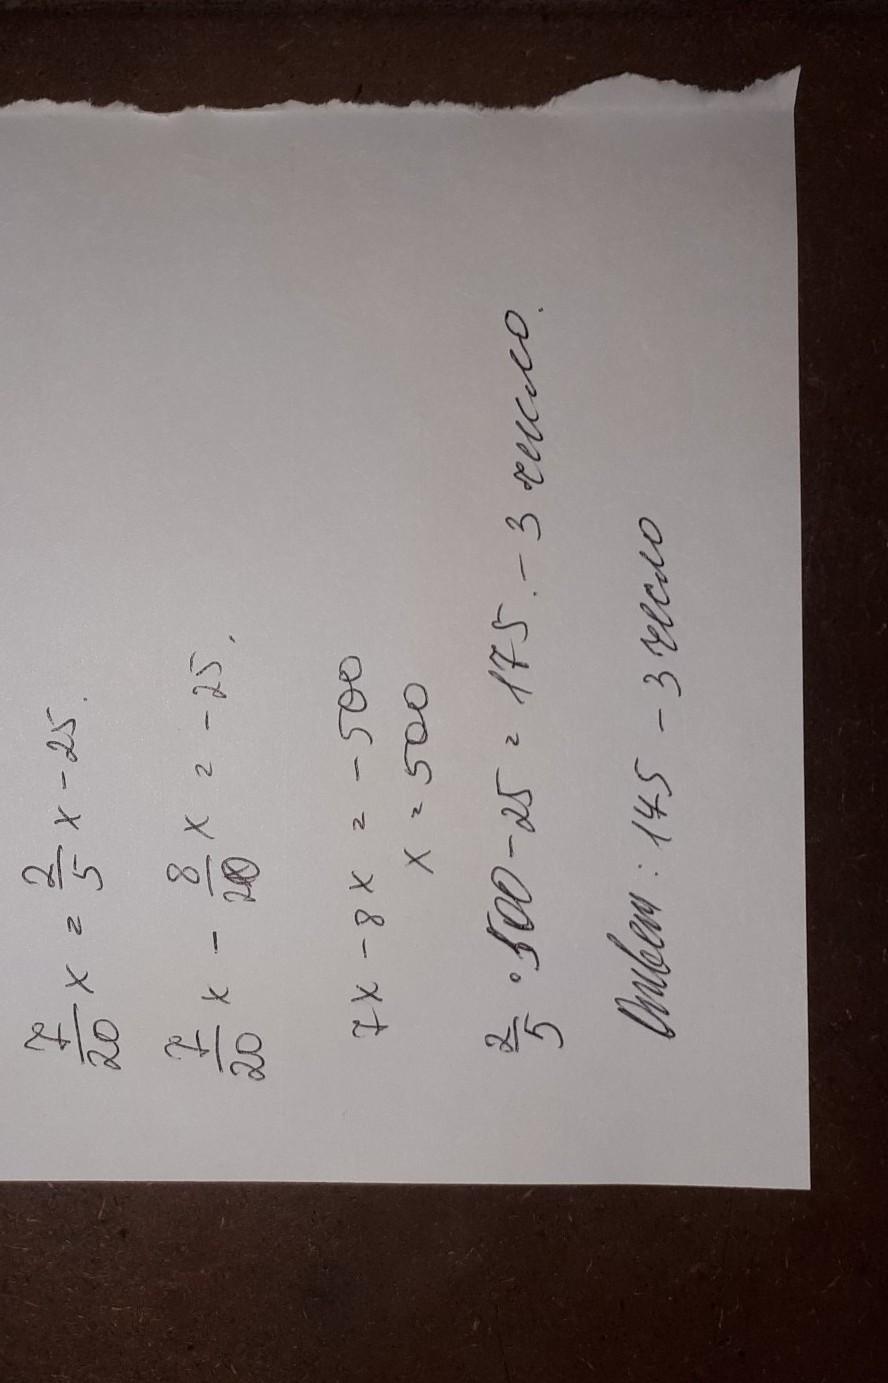 7/20 x = 2/5 x - 25.
7/20 x - 8/20 x = -25.
7x - 8x = -500
x = 500
2/5 · 500 - 25 = 175. - 3 число.
Ответ: 175 - 3 число